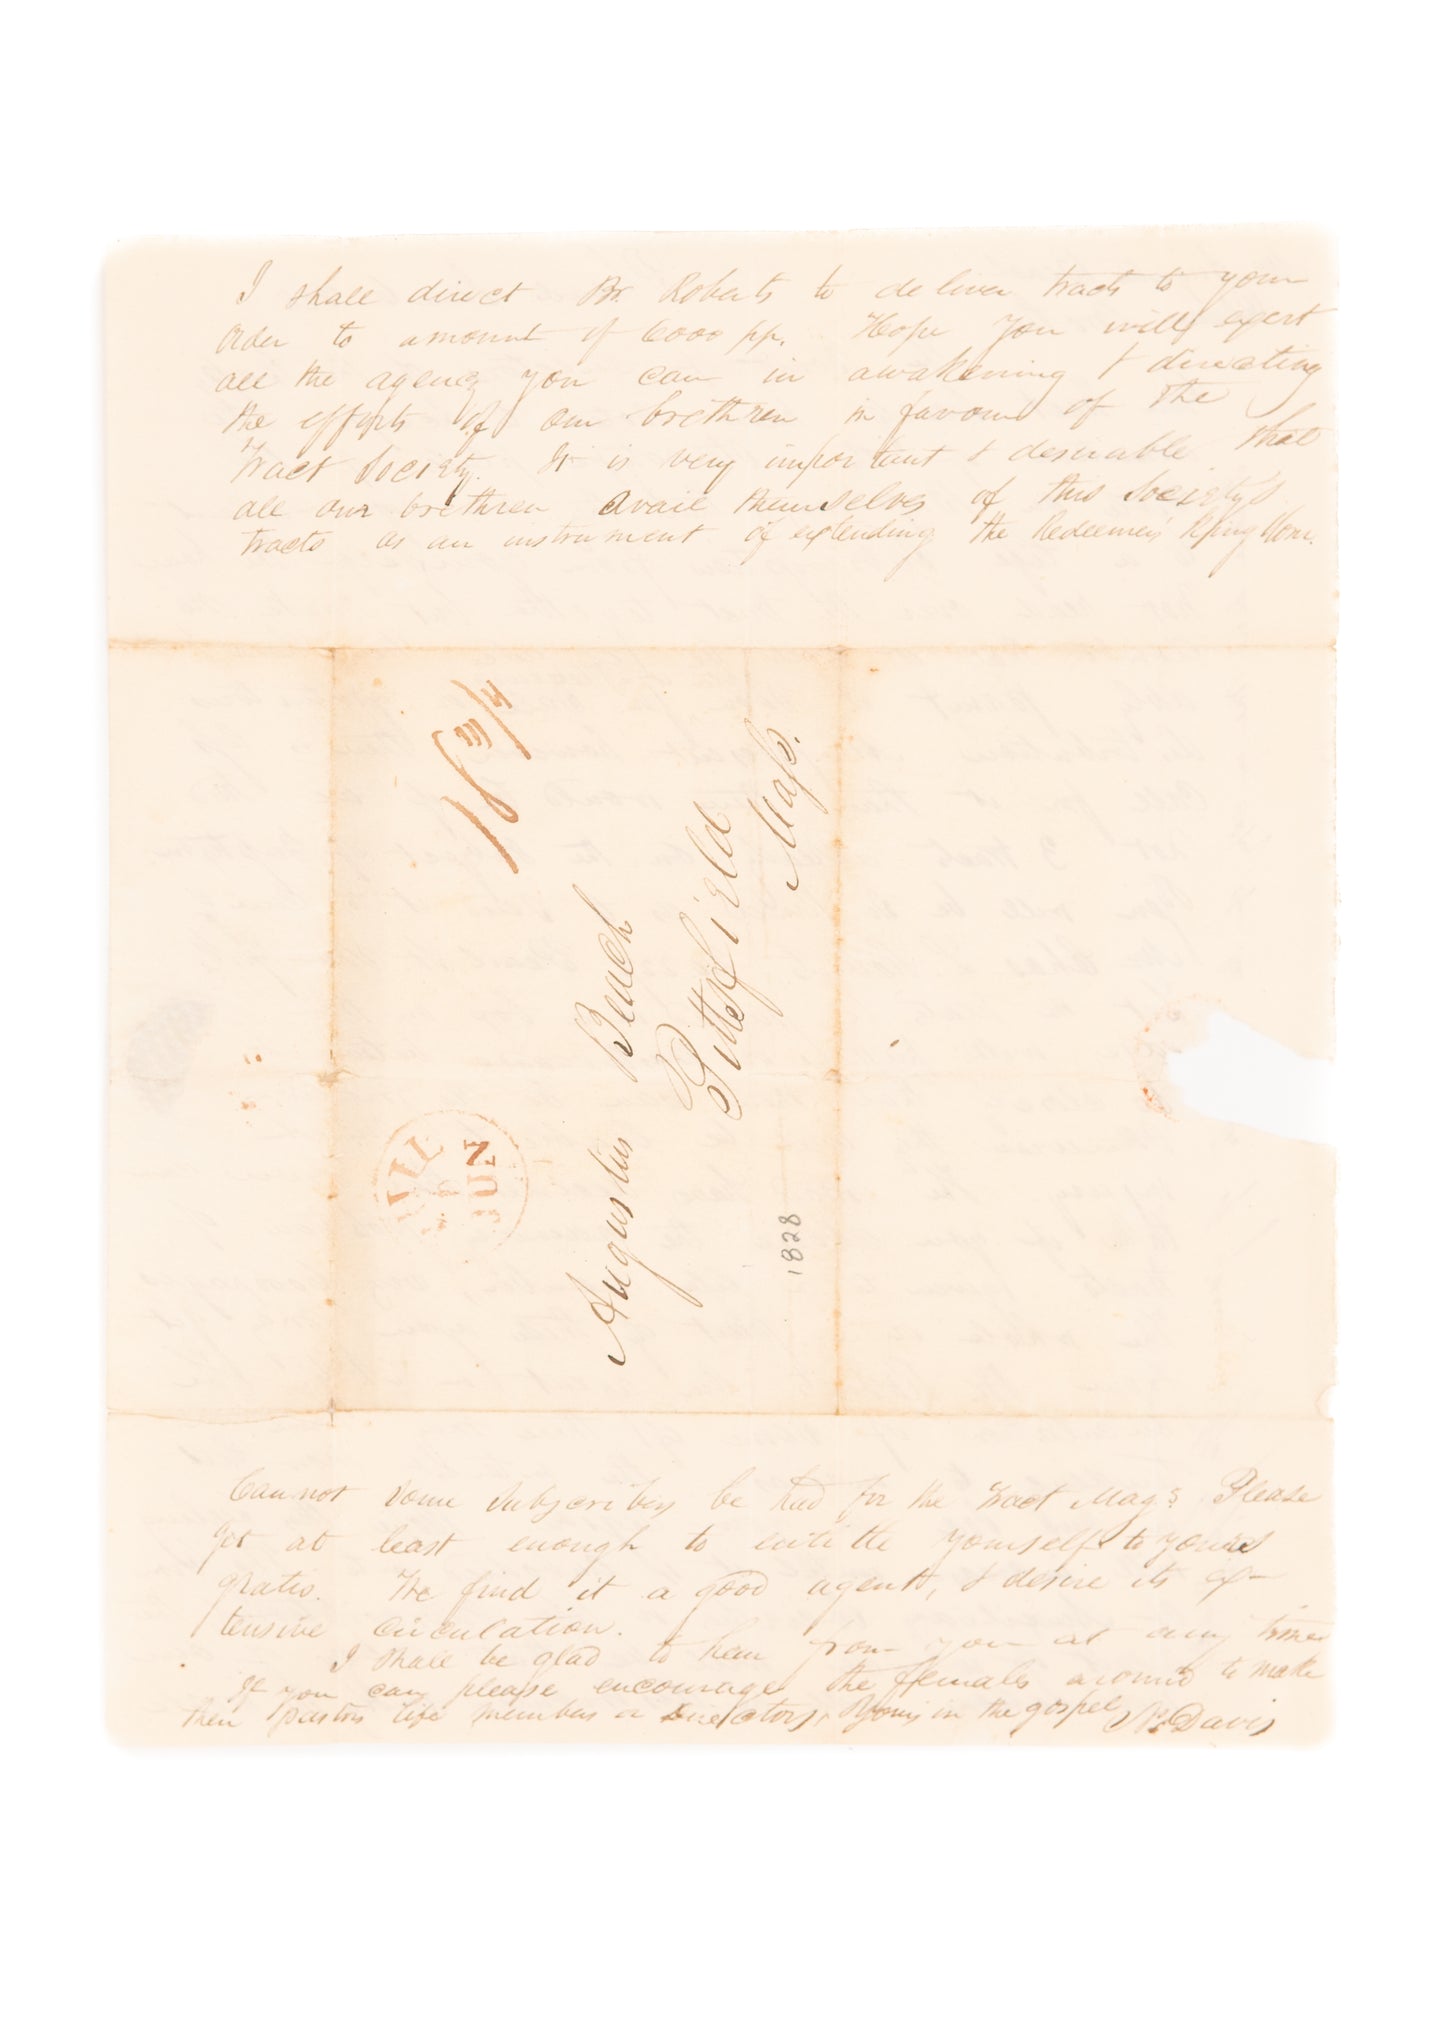 I shall direct Br. Roberts to deliver tracts to your
order to amount of 6000 pp. Hope you will exert
all the agency you can in awakening & directing
the efforts of our brethren in favour of the
Tract Society. It is very important & desirable that
all our brethren avail themselves of this Society's
tracts as an instrument of extending the Redeemer's Kingdom.
18 3/4
JUN
Augustus Beach
Pittsfield
Mass.
1828
Cannot some subscribers be had for the Tract Mag? Please
get at least enough to entitle yourself to yours
gratis. We find it a good agent, & desire its ex-
tensive circulation.
I shall be glad to hear from you at any time
If you can please encourage the females around to make
their pastors life members or Directors, Yours in the gospel N. Davis